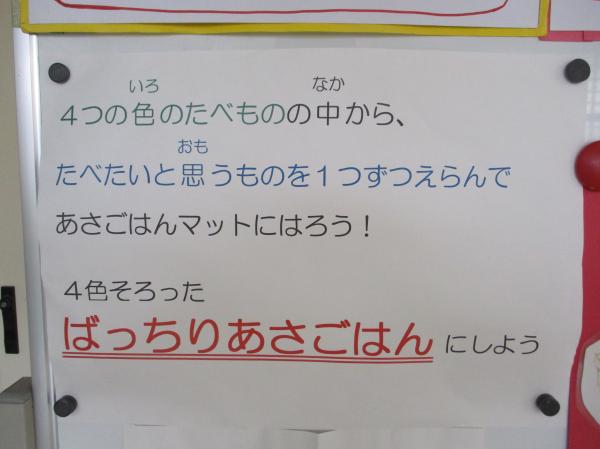 いろ なか
4つの色のたべものの中から、
おも
たべたいと思うものを1つずつえらんで
あさごはんマットにはろう！
4色そろった
ばっちりあさごはん にしよう